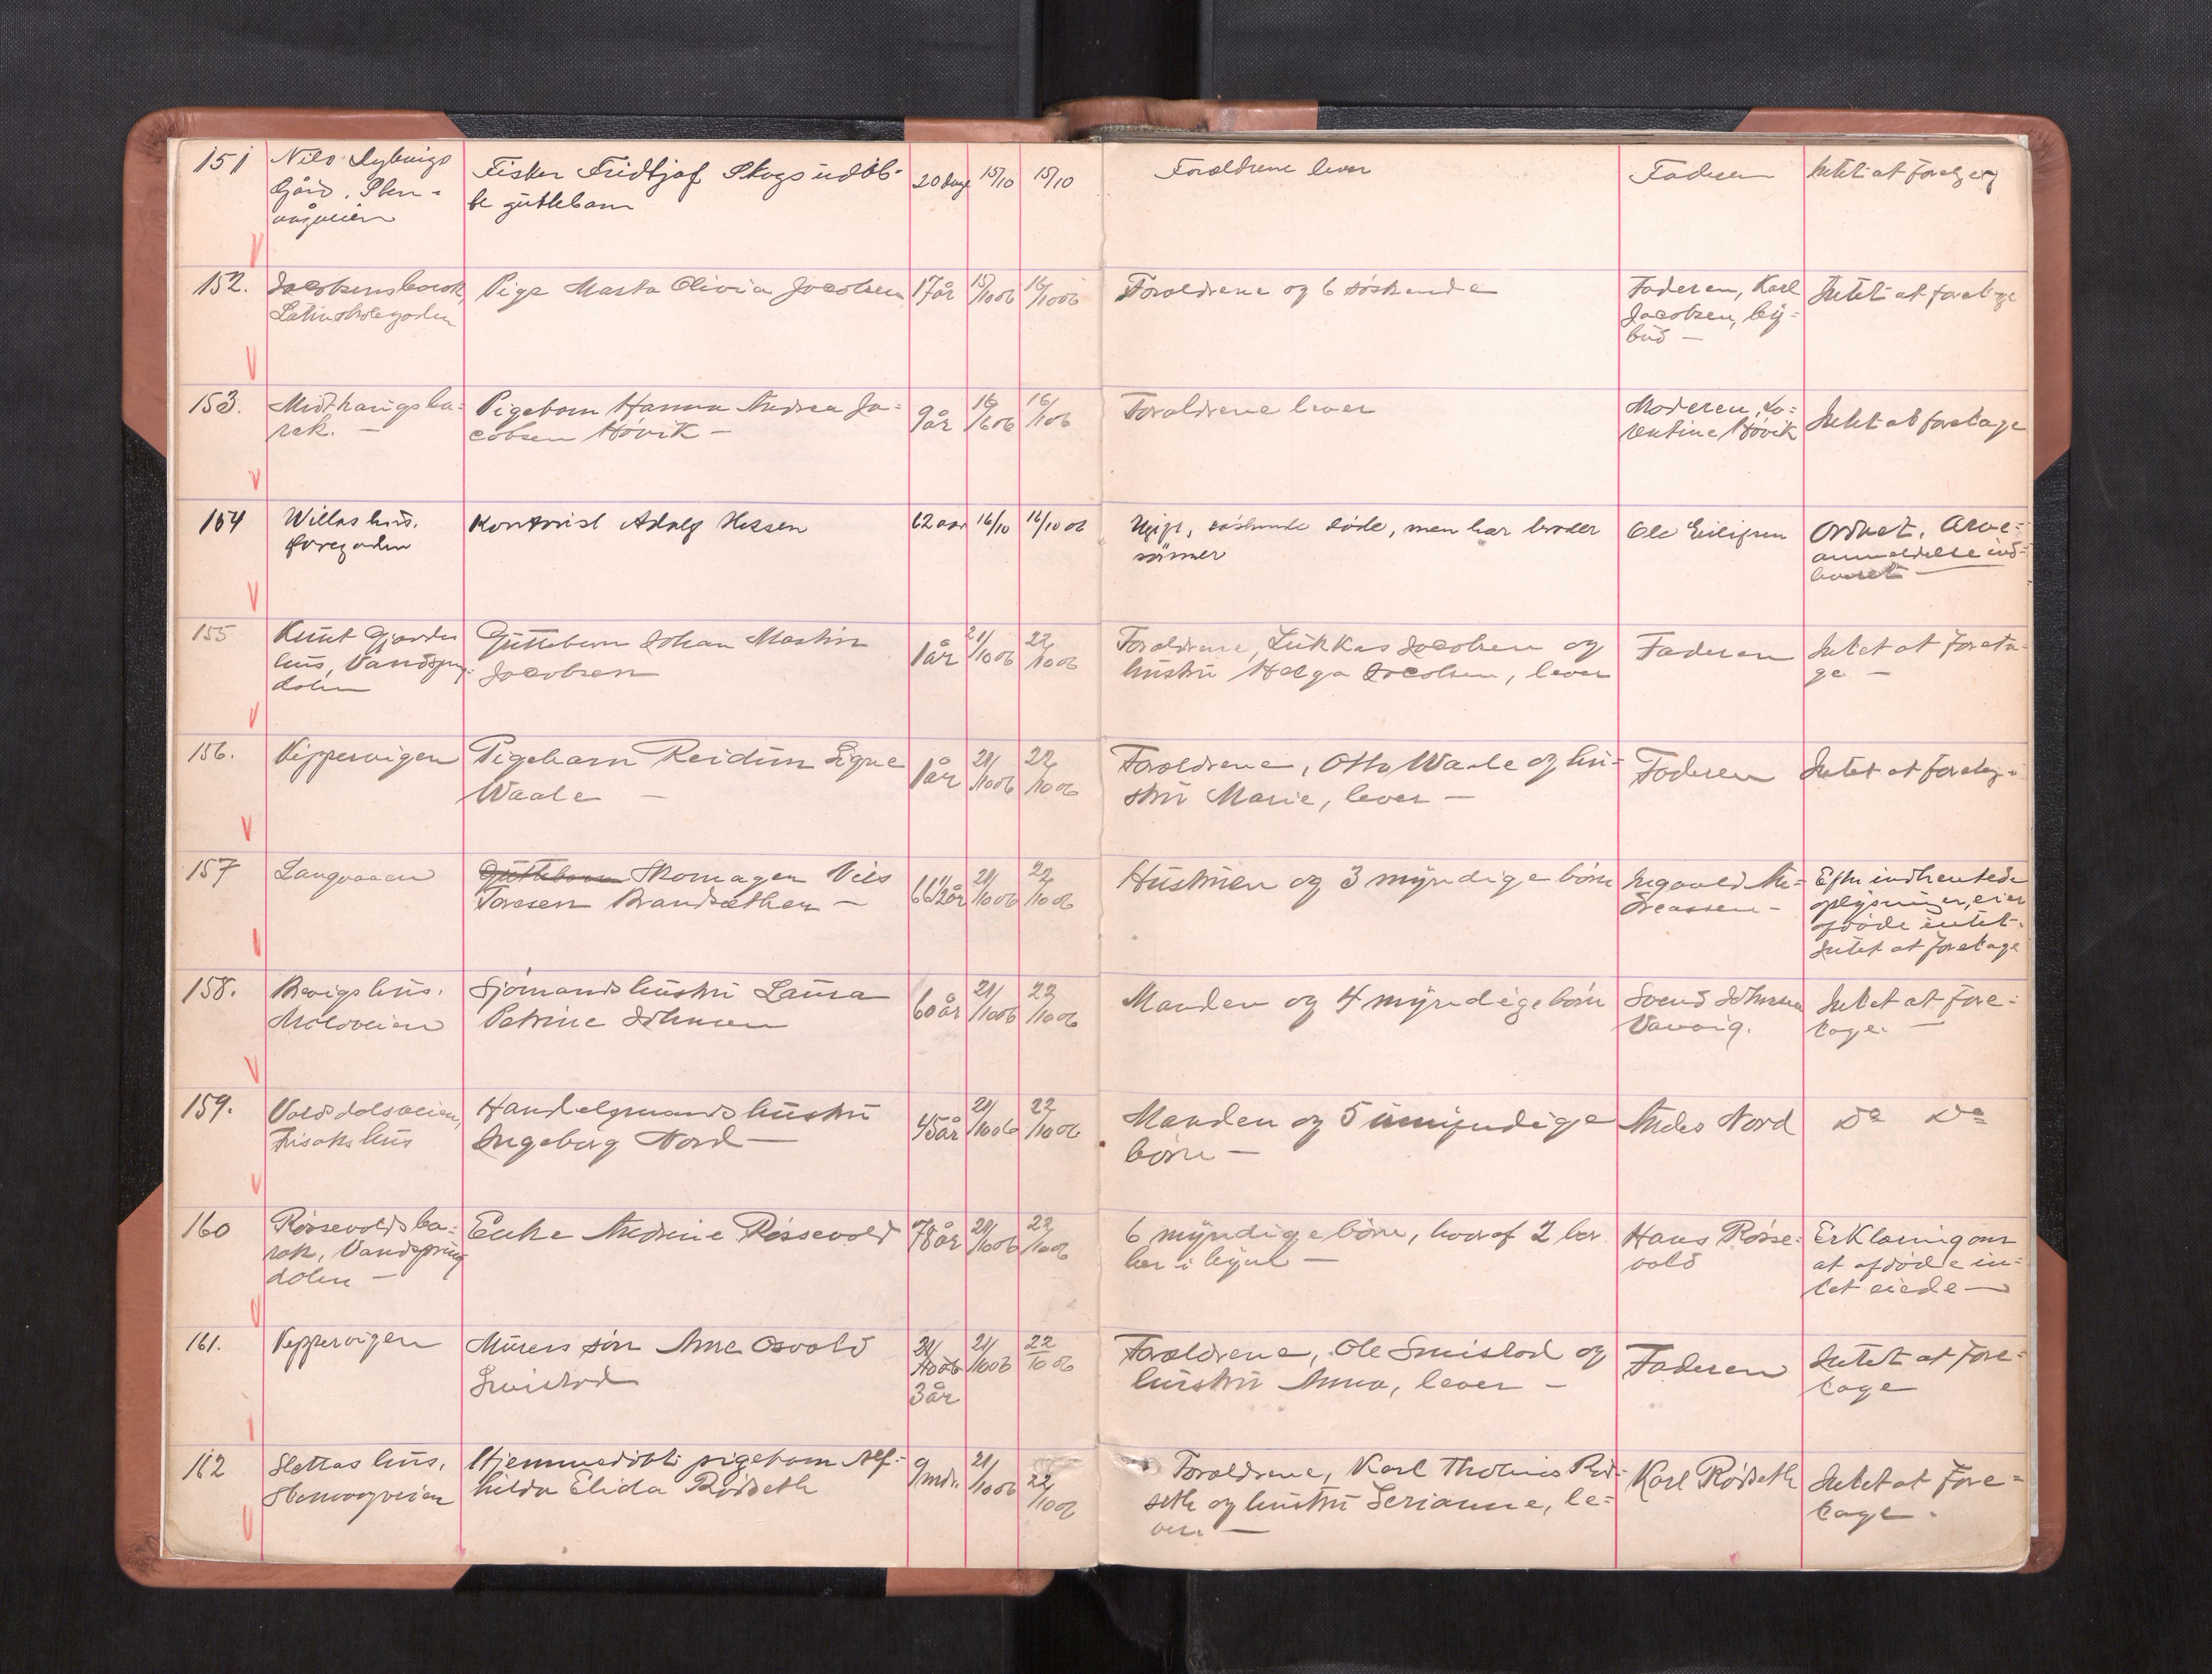 151
Nils
Gård, Sten-
vågveien
Fisker Fridtjof Skogs udøb-
te guttebarn
20 dage
15/10
15/10
Forældrene lever
Faderen
Intet at foretage
152.
Jacobsensbarak,
Latinskolegaden
Pige Marta Olivia Jacobsen
17 år
15/10 06
16/10 06
Forældrene og 6 søskende
Faderen, Karl
Jacobsen, by-
bud —
Intet at foretage
153.
Midthaugsba-
rak. —
Pigebarn Hanna Andrea Ja-
cobsen Høvik —
9 år
16/10 06
16/10 06
Forældrene lever
Moderen, Lo-
rentine Høvik
Intet at foretage
154
Willas hus.
Øvregaden
Kontorist Adolf Hessen
62 aar
16/10
16/10 06
Ugift, søskende døde, men har broder
sønner
Ole Eilifsen
Ordnet. Arve-
anmeldelse ind-
leveret
155
Knut Gjerdes
hus, Vandspring-
dalen
Guttebarn Johan Martin
Jacobsen
1 år
21/10 06
22/10 06
Forældrene, Lukkas Jacobsen og
hustru Helga Jacobsen, lever
Faderen
Intet at foreta-
ge —
156.
Vippervigen
Pigebarn Reidun Signe
Waale —
1 år
21/10 06
22/10 06
Forældrene, Otto Waale og hu-
stru Marie, lever —
Faderen
Intet at foretage
157
Langvaaen
Guttebarn Skomager Nils
Toresen Brandsæther —
66 1/2 år
21/10 06
22/10 06
Hustruen og 3 myndige børn
Ingvald An-
dreassen —
Efter indhentede
oplysninger, eier
afdøde intet.
Intet at foretage
158.
Brevigs hus.
Moloveien
Sjømandshustru Laura
Petrine Johnsen
60 år
21/10 06
22/10 06
Manden og 4 myndige børn
Svend Johnsen
Intet at fore-
tage. —
159.
Voldsdalsveien,
Frisaks hus
Handelsmands hustru
Ingeborg Nord —
45 år
21/10 06
22/10 06
Manden og 5 umyndige
børn —
Anders Nord
Do Do
160
Røssevolds ba-
rak, Vandspring
dalen —
Enke Andrine Røssevold
78 år
21/10 06
22/10 06
6 myndige børn, hvoraf 2 bor
her i byen —
Hans Røsse-
vold
Erklæring om
at afdøde in-
tet eiede —
161.
Vippervigen
Murers søn Arne Osvald
21/10 06
3 år
21/10 06
22/10 06
Forældrene, Ole og
hustru Anna, lever —
Faderen
Intet at fore-
tage
162
Slettas hus,
Stenvaagveien
Hjemmedøbt pigebarn Alf-
hilda Elida Rødseth
9 mdr.
21/10 06
22/10 06
Forældrene, Karl Thomas Rød-
seth og hustru Serianne, le-
ver. —
Karl Rødseth
Intet at fore-
tage.